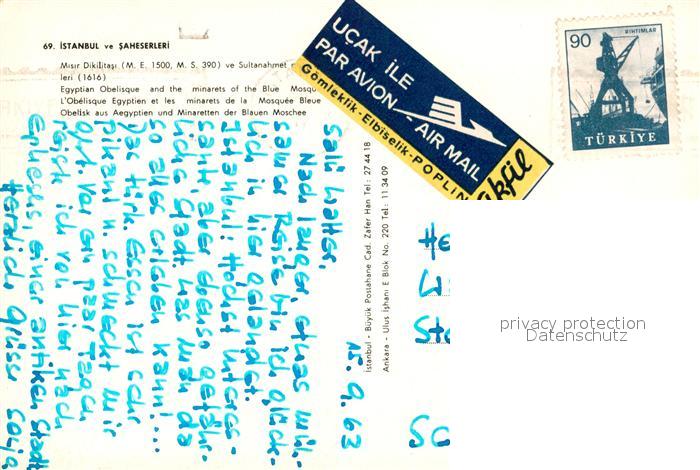 69. İSTANBUL ve ŞAHESERLERİ
Mısır Dikilitaşı (M. E. 1500, M. S. 390) ve Sultanahmet
leri (1616)
Egyptian Obelisque and the minarets of the Blue Mosqu
L'Obélisque Egyptien et les minarets de la Mosquée Bleue
Obelisk aus Aegyptien und Minaretten der Blauen Moschee
UÇAK İLE
PAR AVION - AIR MAIL
Gömleklik-Elbiselik-POPLIN
akfil
90
RIHTIMLAR
TÜRKİYE
İstanbul - Büyük Postahane Cad. Zafer Han Tel: 27 44 18
Ankara - Ulus İşhanı E Blok No. 220 Tel: 11 34 09
15. 9. 63
Salü Walter,
Nach langer, etwas müh-
samer Reise bin ich glück-
lich in hier gelandet.
Istanbul: Höchst interes-
sante aber ebenso gefähr-
liche Stadt. Was man da
so alles erleben kann!...
Das türk. Essen ist sehr
pikant u. schmeckt mir
gut. Vor ein paar Tagen
reiste ich von hier nach
Ephesus, einer antiken Stadt
Herzliche Grüsse
He
St
privacy protection
Datenschutz